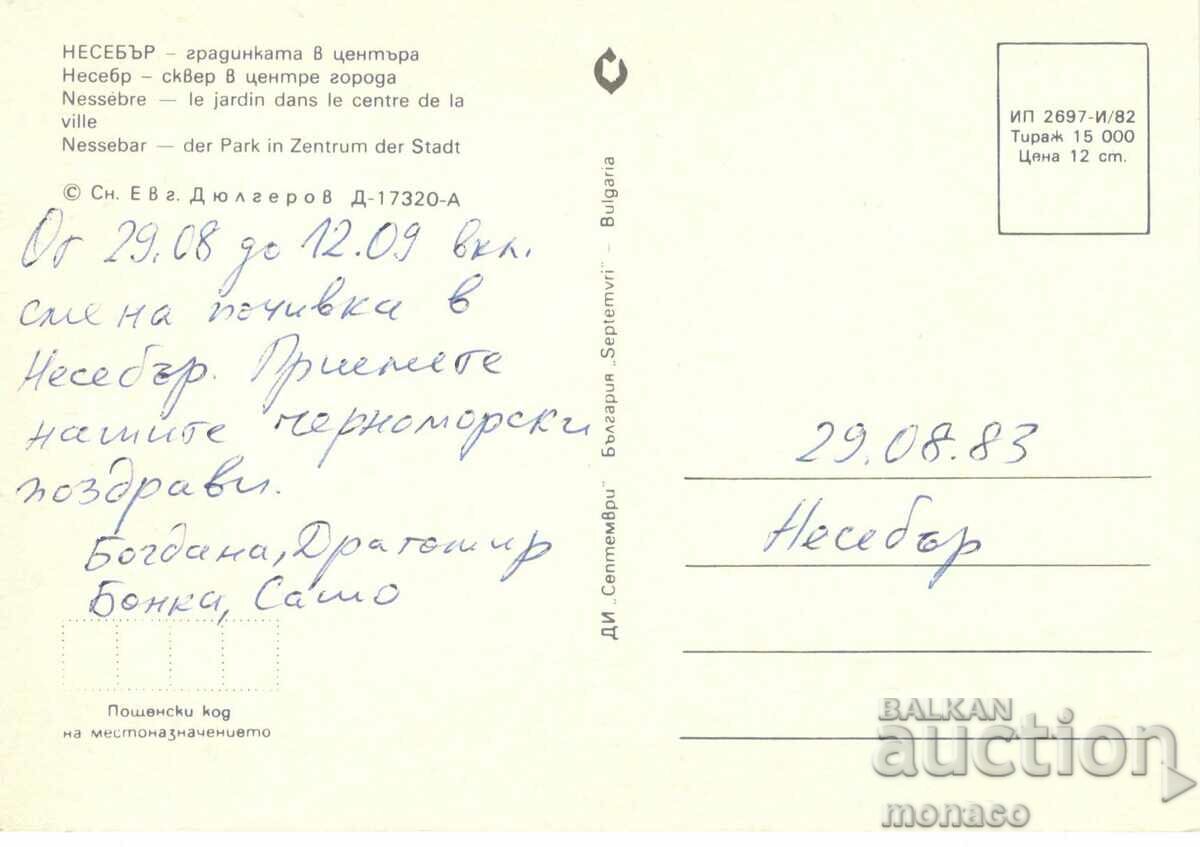 НЕСЕБЪР – градинката в центъра
Несебр – сквер в центре города
Nessèbre — le jardin dans le centre de la
ville
Nessebar — der Park in Zentrum der Stadt
© Сн. Евг. Дюлгеров Д-17320-А
От 29.08 до 12.09 вкл.
сме на почивка в
Несебър. Приемете
нашите черноморски
поздрави.
Богдана, Драгомир
Бонка, Сашо
Пощенски код
на местоназначението
ДИ „Септември" България „Septemvri" – Bulgaria
ИП 2697-И/82
Тираж 15 000
Цена 12 ст.
29.08.83
Несебър
BALKAN
auction
monaco